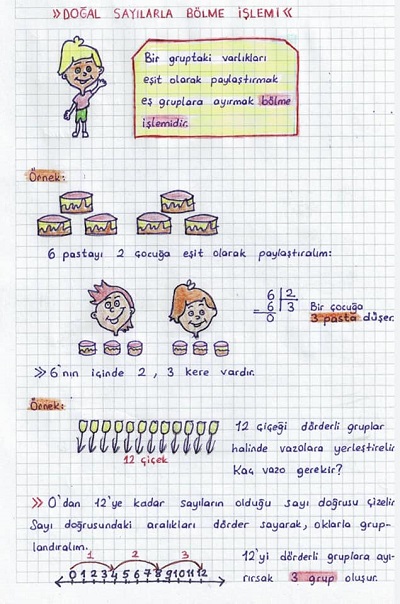 >> DOĞAL SAYILARLA BÖLME İŞLEMİ <<
Bir gruptaki varlıkları
eşit olarak paylaştırmak
eş gruplara ayırmak bölme
işlemidir.
Örnek:
6 pastayı 2 çocuğa eşit olarak paylaştıralım:
6 2
6 3
0
Bir çocuğa
3 pasta düşer.
>> 6'nın içinde 2, 3 kere vardır.
Örnek:
12 çiçek
12 çiçeği dörderli gruplar
halinde vazolara yerleştirelir
Kaç vazo gerekir?
>> 0'dan 12'ye kadar sayıların olduğu sayı doğrusu çizelir
Sayı doğrusundaki aralıkları dörder sayarak, oklarla grup-
landıralım.
1 2 3
0 1 2 3 4 5 6 7 8 9 10 11 12
12'yi dörderli gruplara ayı-
rırsak 3 grup oluşur.